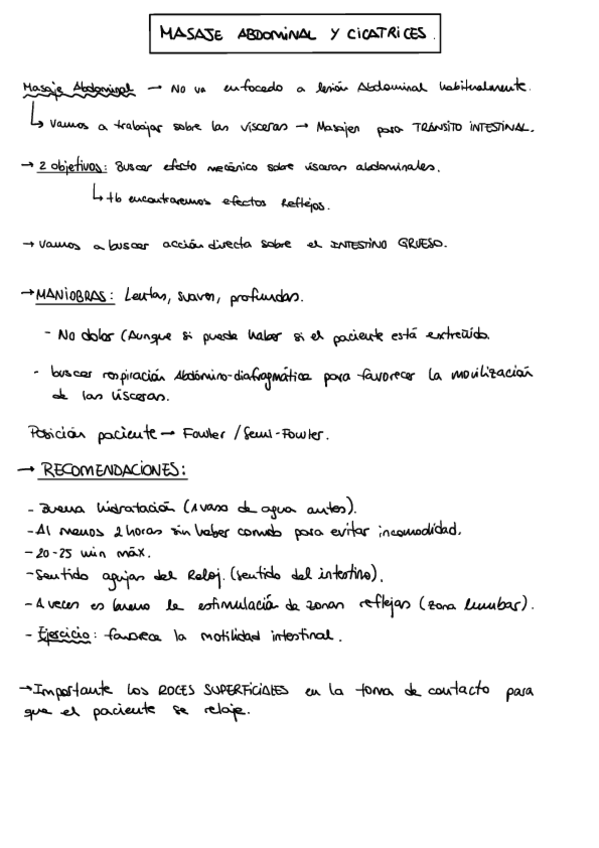 MASAJE ABDOMINAL Y CICATRICES.
Masaje Abdominal → No va enfocado a lesión Abdominal habitualmente.
↳ Vamos a trabajar sobre las vísceras → Masajes para TRÁNSITO INTESTINAL.
→ 2 objetivos: Buscar efecto mecánico sobre vísceras abdominales.
↳ tb encontraremos efectos Reflejos.
→ Vamos a buscar acción directa sobre el INTESTINO GRUESO.
→ MANIOBRAS: Lentas, suaves, profundas.
- No dolor (Aunque si puede haber si el paciente está extreñido.
- buscar respiración Abdómino-diafragmática para favorecer la movilización
de las vísceras.
Posición paciente → Fowler / Semi-Fowler.
→ RECOMENDACIONES:
- Buena hidratación (1 vaso de agua antes).
- Al menos 2 horas sin haber comido para evitar incomodidad.
- 20-25 min máx.
- Sentido agujas del Reloj. (sentido del intestino).
- A veces es bueno la estimulación de zonas reflejas (zona lumbar).
- Ejercicio: favorece la motilidad intestinal.
→ Importante los ROCES SUPERFICIALES en la toma de contacto para
que el paciente se relaje.